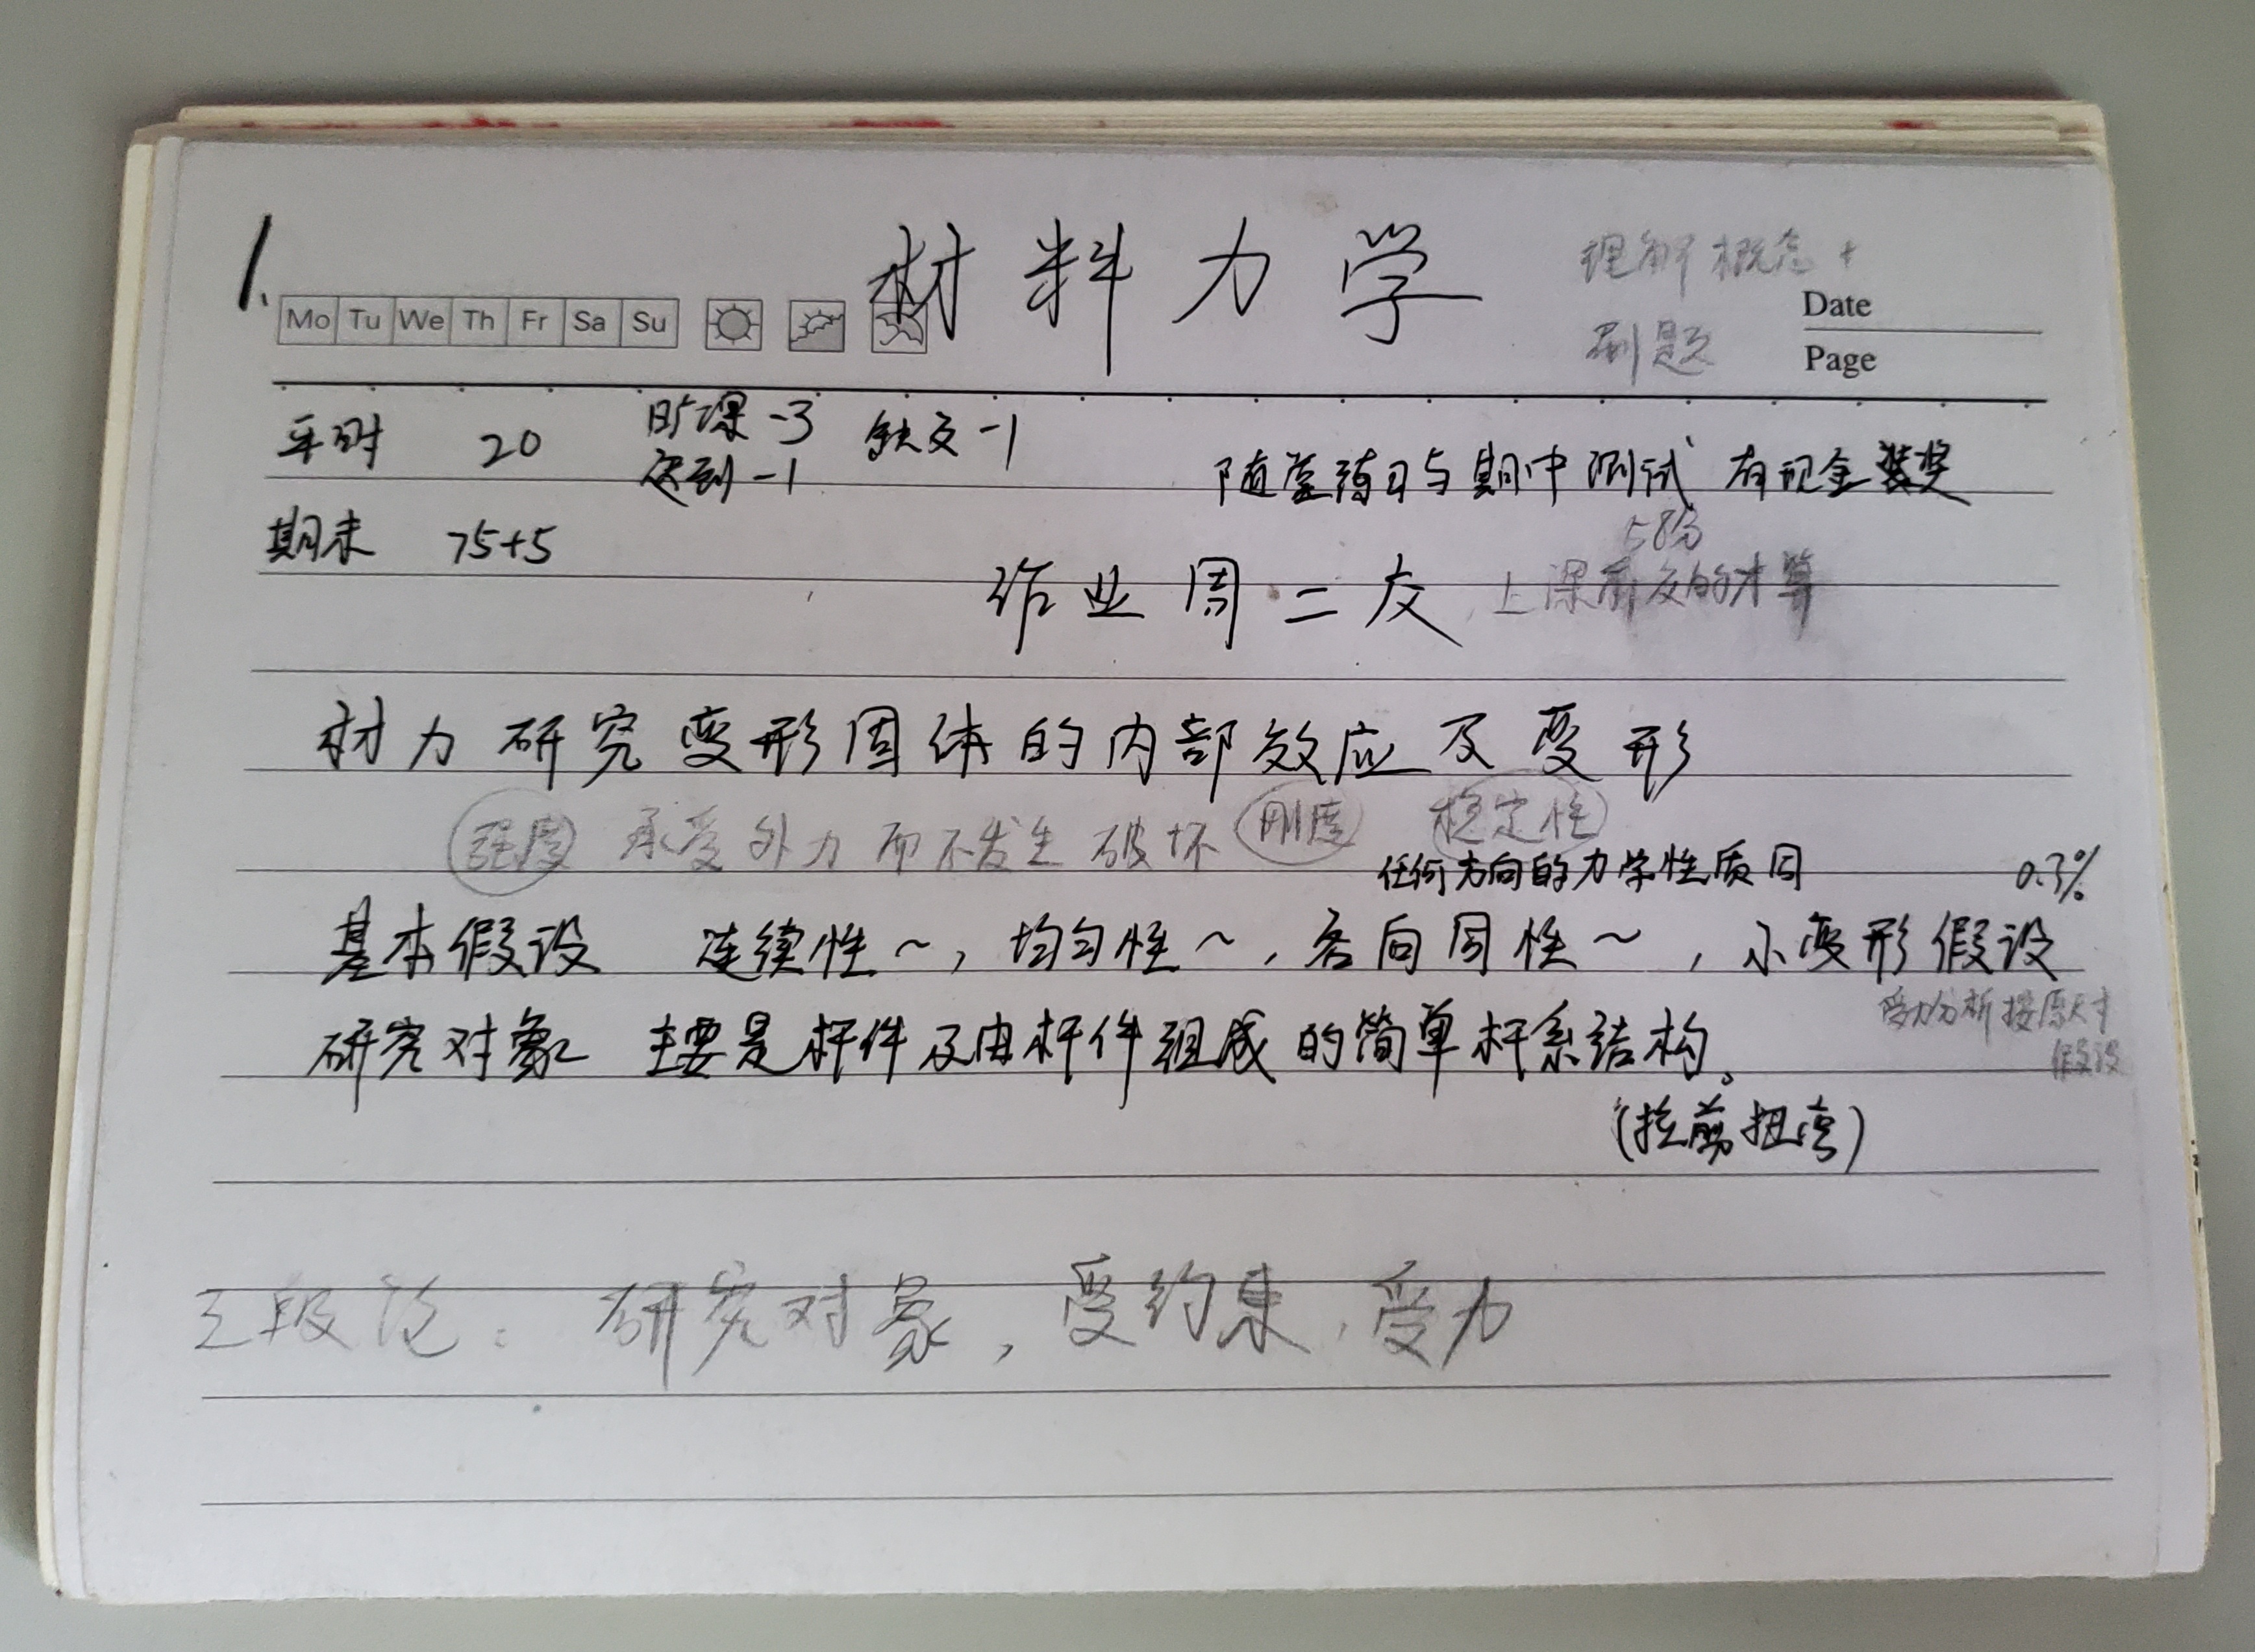 1. 材料力学 理解概念+
Mo Tu We Th Fr Sa Su Date
刷题 Page
平时 20 旷课-3 缺交-1
迟到-1 随堂练习与期中测试 有现金奖
期末 75+5 58分
作业周二交 上课前交的才算
材力研究变形固体的内部效应及变形
强度 承受外力而不发生破坏 刚度 稳定性
任何方向的力学性质同 0.3%
基本假设 连续性~,均匀性~,各向同性~,小变形假设
受力分析按原尺寸
假设
研究对象 主要是杆件及由杆件组成的简单杆系结构。
(拉剪扭弯)
三段论: 研究对象,受约束,受力